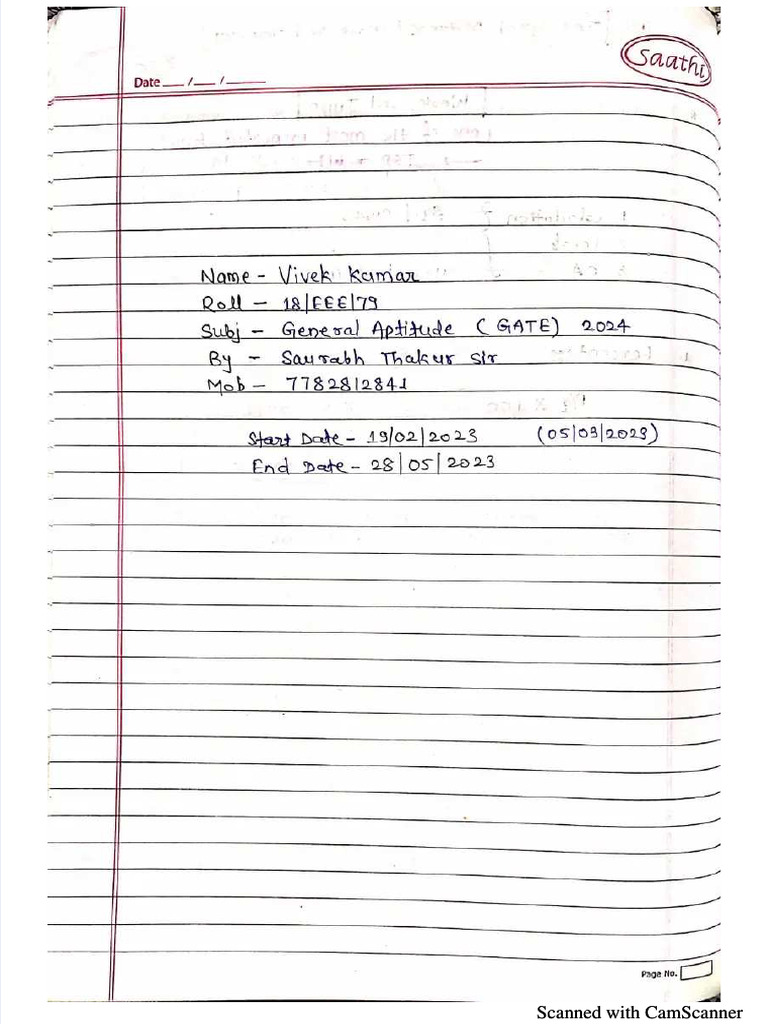 Saathi
Date ___/___/_____
Name - Vivek Kumar
Roll - 18/EEE/79
Subj - General Aptitude (GATE) 2024
By - Saurabh Thakur Sir
Mob - 7782812841
Start Date - 19/02/2023 (05/03/2023)
End Date - 28/05/2023
Page No.
Scanned with CamScanner